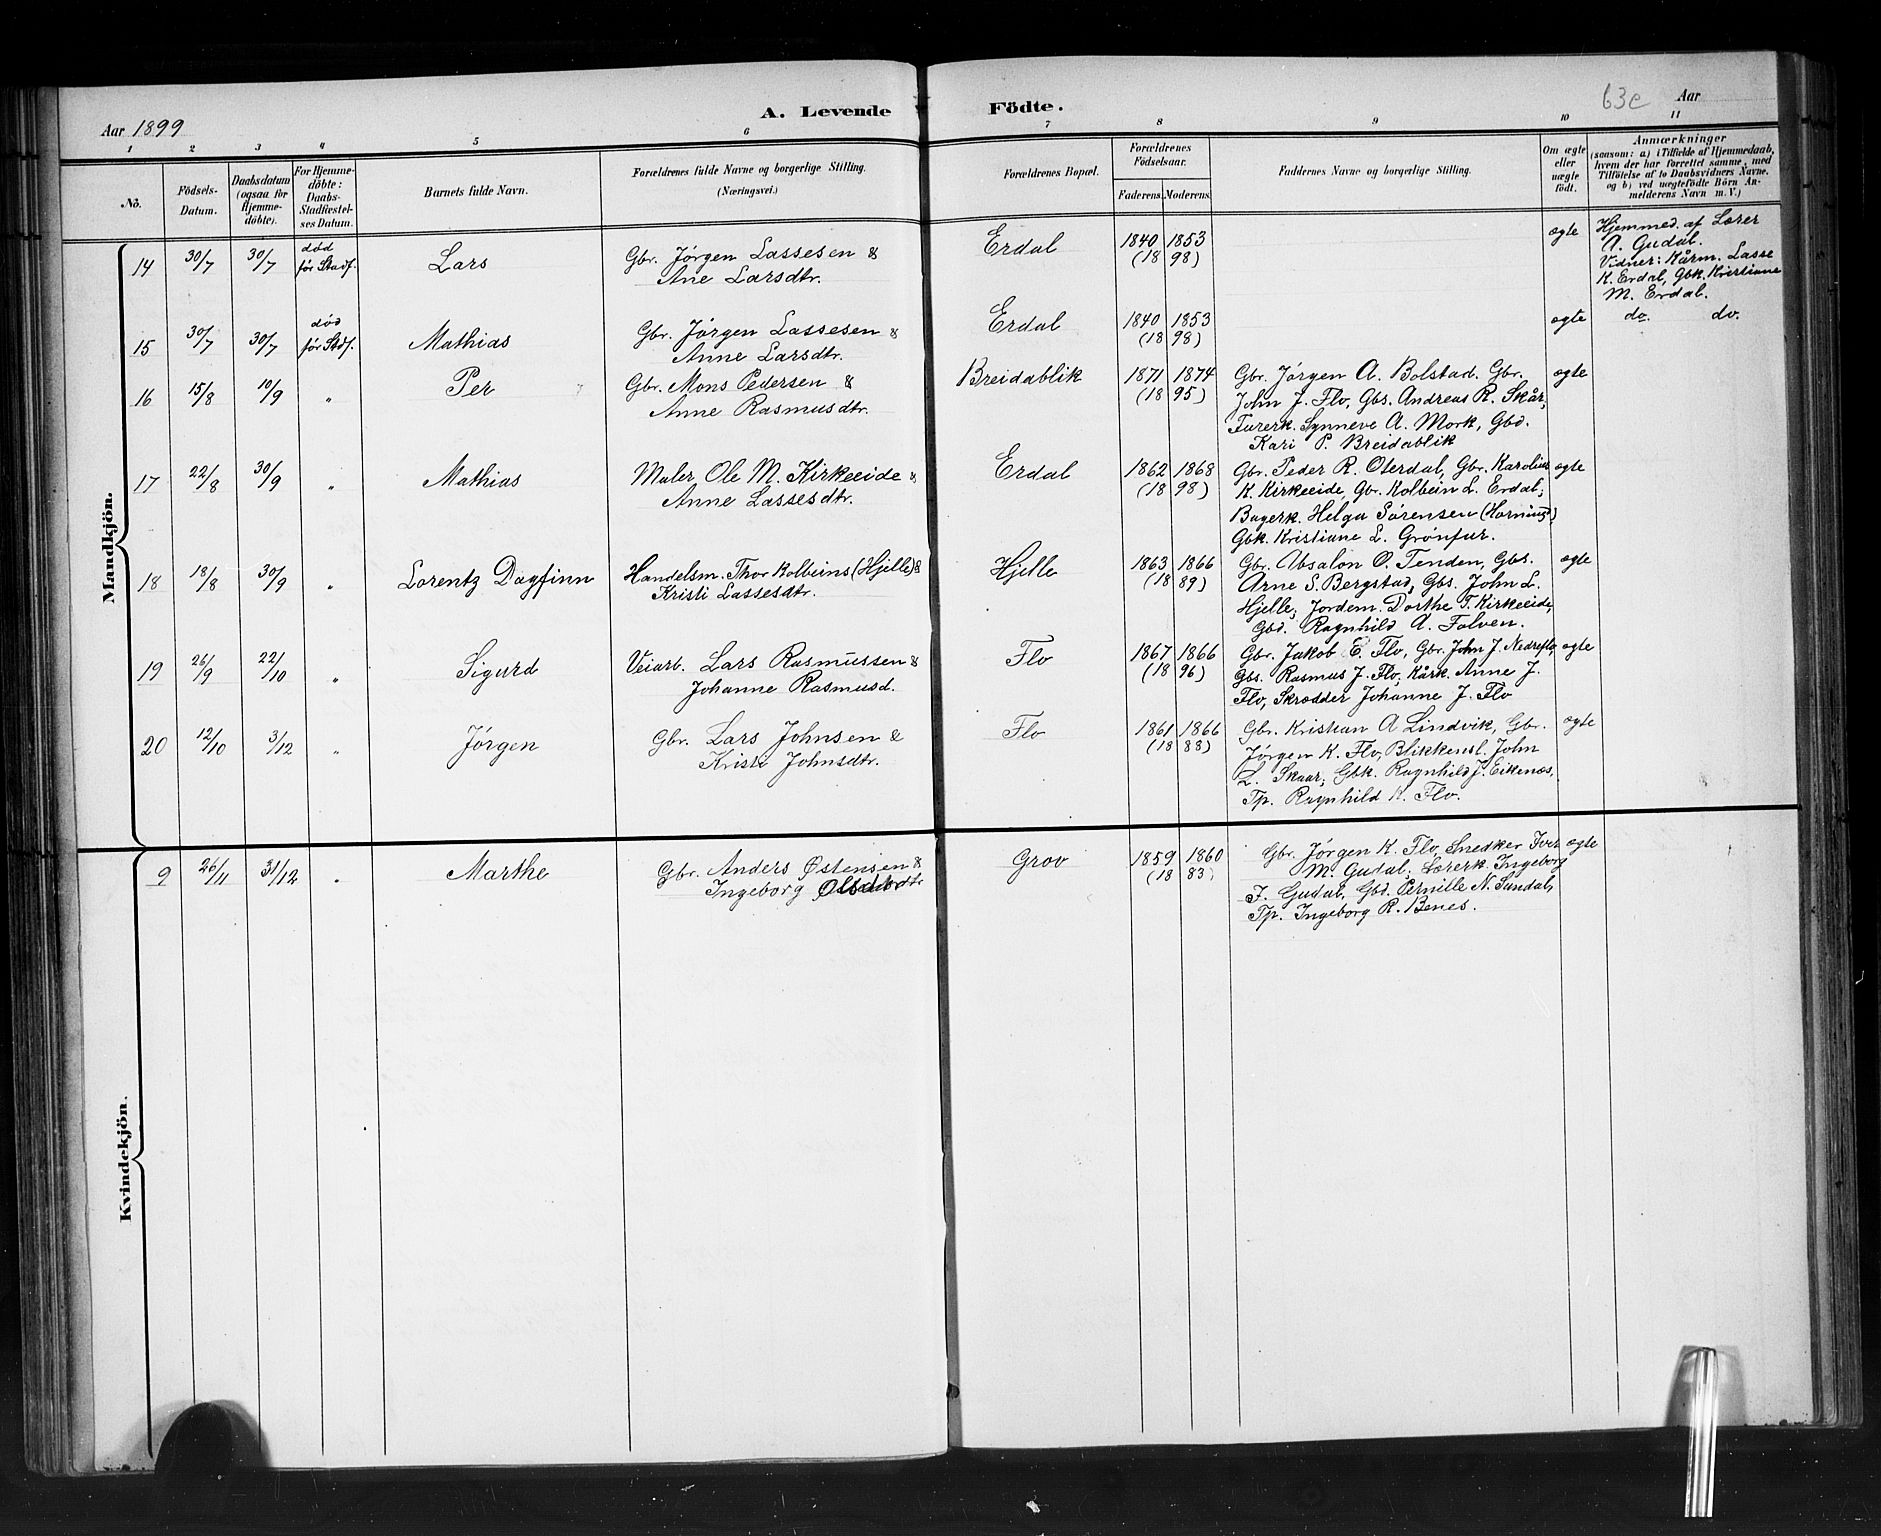 Aar 1899
A. Levende Födte.
63c
Aar
1 2 3 4 5 6 7 8 9 10 11
No.
Födsels-Datum.
Daabsdatum (ogsaa for Hjemmedöbte).
For Hjemmedöbte: Daabs-Stadfæstelses Datum.
Barnets fulde Navn.
Forældrenes fulde Navne og borgerlige Stilling.
(Næringsvei.)
Forældrenes Bopæl.
Forældrenes Födselsaar.
Faderens. Moderens.
Faddernes Navne og borgerlige Stilling.
Om ægte eller uægte födt.
Anmærkninger
(saasom: a) i Tilfælde af Hjemmedaab,
hvem der har forrettet samme, med
Tilföielse af to Daabsvidners Navne.
og b) ved uægtefödte Börn An-
melderens Navn m. V.)
Mandkjön.
14 30/7 30/7 død før Stadf. Lars
Gbr. Jørgen Lassesen &
Ane Larsdtr.
Erdal 1840 1853
(18 98)
ægte
Hjemmed. af Lærer
A. Gudal.
Vidner: Kårm. Lasse
K. Erdal, Gbk. Kristiane
M. Erdal.
15 30/7 30/7 død før Stadf. Mathias
Gbr. Jørgen Lassesen &
Anne Larsdtr.
Erdal 1840 1853
(18 98)
ægte do. do.
16 15/8 10/9 " Per
Gbr. Mons Pedersen &
Anne Rasmusdtr.
Breidablik 1871 1874
(18 95)
Gbr. Jørgen A. Bolstad. Gbr.
John J. Flo, Gbs. Andreas R. Skår,
Furerk. Synneve A. Mork, Gbd.
Kari P. Breidablik
ægte
17 22/8 30/9 " Mathias
Maler Ole M. Kirkeeide &
Anne Lassesdtr.
Erdal 1862 1868
(18 98)
Gbr. Peder R. Oterdal, Gbr. Karolius
K. Kirkeeide, Gbr. Kolbein L. Erdal;
Bagerk. Helga Sørensen
Gbk. Kristiane L. Grønfur.
ægte
18 18/8 30/9 " Lorentz Dagfinn
Handelsm. Thor Kolbeins (Hjelle) &
Kristi Lassesdtr.
Hjelle 1863 1866
(18 89)
Gbr. Absalon O. Tenden, Gbs.
Arne S. Bergstad, Gbs. John L.
Hjelle; Jordem. Dorthe T. Kirkeeide,
Gbd. Ragnhild A. Folven.
ægte
19 26/9 22/10 " Sigurd
Veiarb. Lars Rasmussen &
Johanne Rasmusd.
Flo 1867 1866
(18 96)
Gbr. Jakob E. Flo, Gbr. John J. Nedreflo,
Gbs. Rasmus J. Flo, Kårk. Anne J.
Flo, Skrædder Johanne J. Flo
ægte
20 12/10 3/12 " Jörgen
Gbr. Lars Johnsen &
Kristi Johnsdtr.
Flo 1861 1866
(18 88)
Gbr. Kristian A Lindvik, Gbr.
Jørgen K. Flo, Blikkensl. John
L. Skaar; Gbk. Ragnhild J. Eikenæs,
Tp. Ragnhild K. Flo.
ægte
Kvindekjön.
9 26/11 31/12 " Marthe
Gbr. Anders Østensen &
Ingeborg
Grov 1859 1860
(18 83)
Gbr. Jørgen K. Flo, Snedker Iver
M. Gudal; Lærerk. Ingeborg
J. Gudal, Gbd. Pernille N. Sundal,
Tp. Ingeborg R. Benes.
ægte